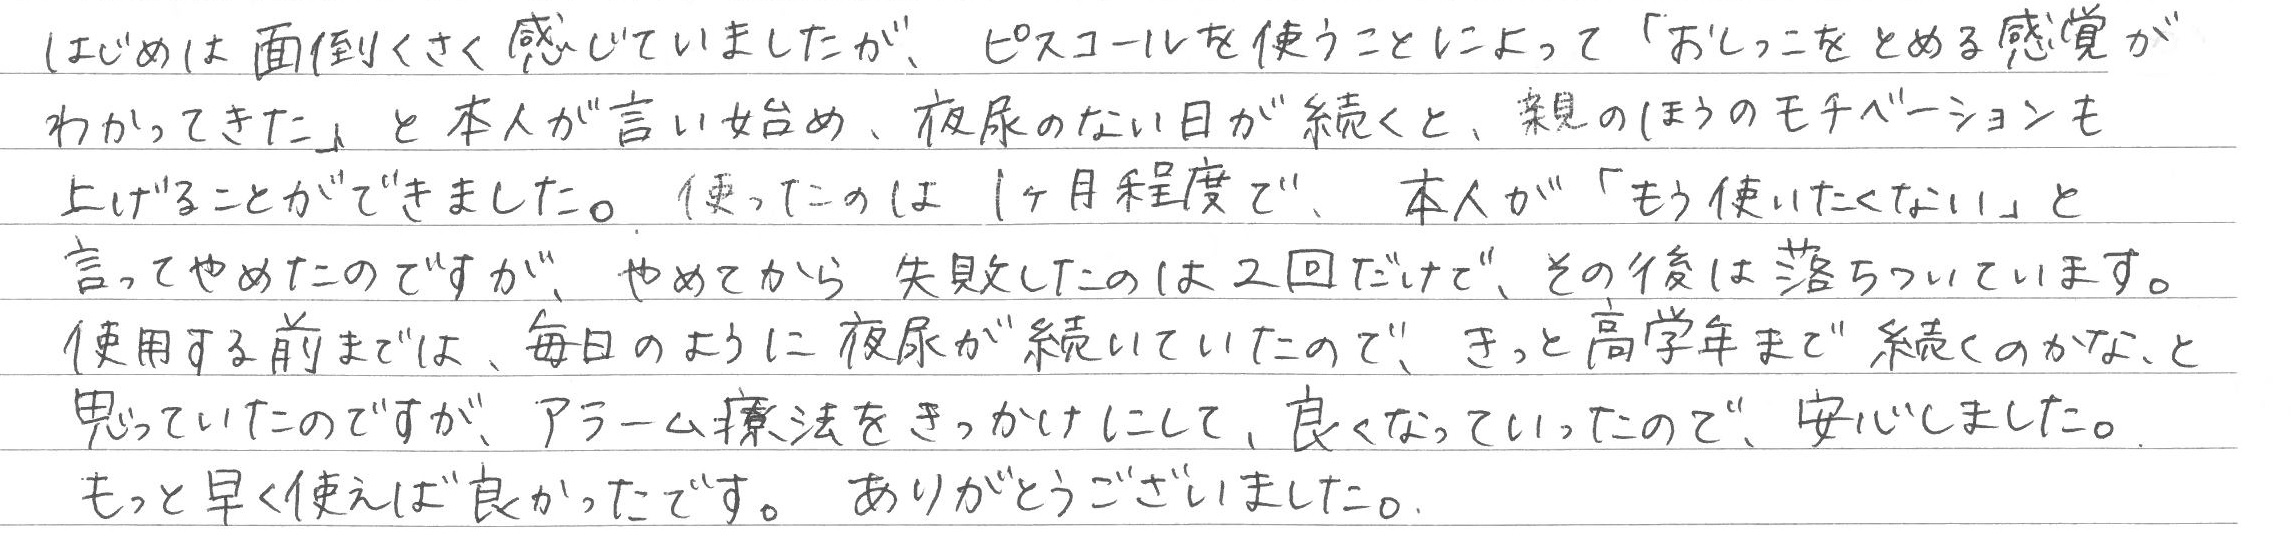 はじめは面倒くさく感じていましたが、ピスコールを使うことによって「おしっこをとめる感覚が
わかってきた」と本人が言い始め、夜尿のない日が続くと、親のほうのモチベーションも
上げることができました。使ったのは1ヶ月程度で、本人が「もう使いたくない」と
言ってやめたのですが、やめてから失敗したのは2回だけで、その後は落ちついています。
使用する前までは、毎日のように夜尿が続いていたので、きっと高学年まで続くのかな、と
思っていたのですが、アラーム療法をきっかけにして、良くなっていったので、安心しました。
もっと早く使えば良かったです。ありがとうございました。